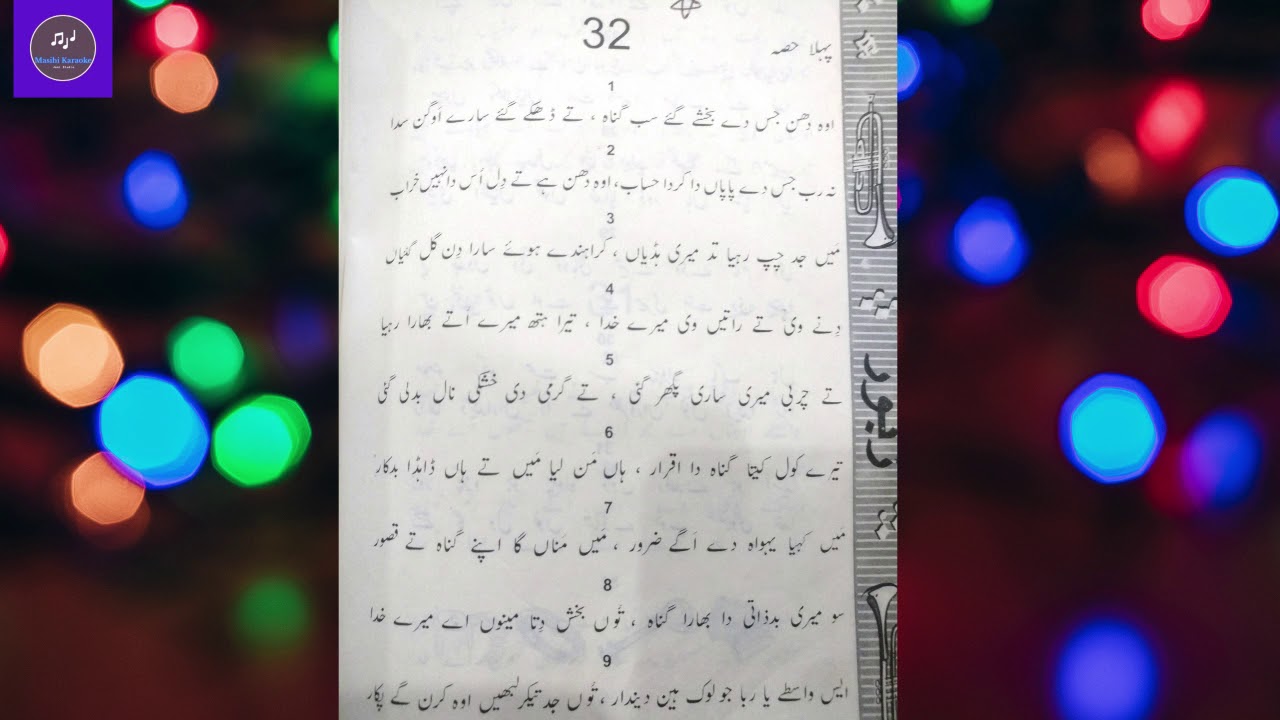 Masihi Karaoke
32
پہلا حصہ
1
اوہ دھن جس دے بخشے گئے سب گناہ ، تے ڈھکے گئے سارے اَوگن سدا
2
نہ رب جس دے پاپاں دا کردا حساب، اوہ دھن ہے تے دِل اُس دا نہیں خراب
3
مَیں جد چپ رہیا تد میری ہڈیاں ، کراہندے ہوئے سارا دِن گل گئیاں
4
دِنے وی تے راتیں وی میرے خدا ، تیرا ہتھ میرے اُتے بھارا رہیا
5
تے چربی میری ساری پگھر گئی ، تے گرمی دی خشکی نال بدلی گئی
6
تیرے کول کیتا گناہ دا اقرار ، ہاں مَن لیا مَیں تے ہاں ڈاہڈا بدکار
7
مَیں کہیا یہوواہ دے اَگے ضرور ، مَیں مَناں گا اپنے گناہ تے قصور
8
سو میری بدذاتی دا بھارا گناہ ، تُوں بخش دِتا مینوں اے میرے خدا
9
ایس واسطے یا ربا جو لوک ہین دیندار ، تُوں جد تیکر لبھیں اوہ کرن گے پکار
زبور